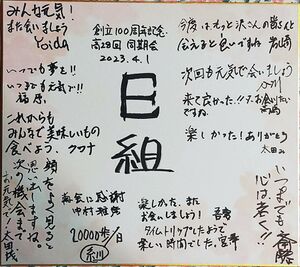 みんな元気!
また会いましょう
Yoida
いつも夢を!!
いつまでも元気で!!
福原
これからも
みんなで美味しいもの
食べよう。クワナ
顔をよく見ると
思い出しますね。
次の機会まで
お元気で! 太田
創立100周年記念
高28回 同期会
2023.4.1
E
組
再会に感謝
中村雅
20000歩/日
糸川
今度はもっと沢山の皆さんと
会えると良いですね 岩崎
次回も元気で会いましょう
来て良かった!! お会いしたい
ですね。
高嶋
楽しかった!ありがとう
太田
楽しかった。また
お会いしましょう! 吾孝
タイムトリップしたようで
楽しい時間でした。宮
いつまでも
心は若く!!
斎藤